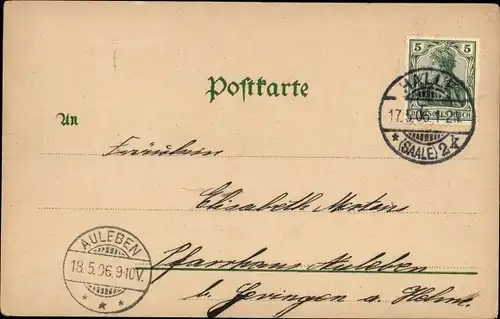 5 5
HALLE
17.5.06.1-2N.
* (SAALE) 2 k
Postkarte
An
Fräulein
Elisabeth
Pfarrhaus Auleben
b. Heringen a. Helme
AULEBEN
18.5.06.9-10V.
* * *